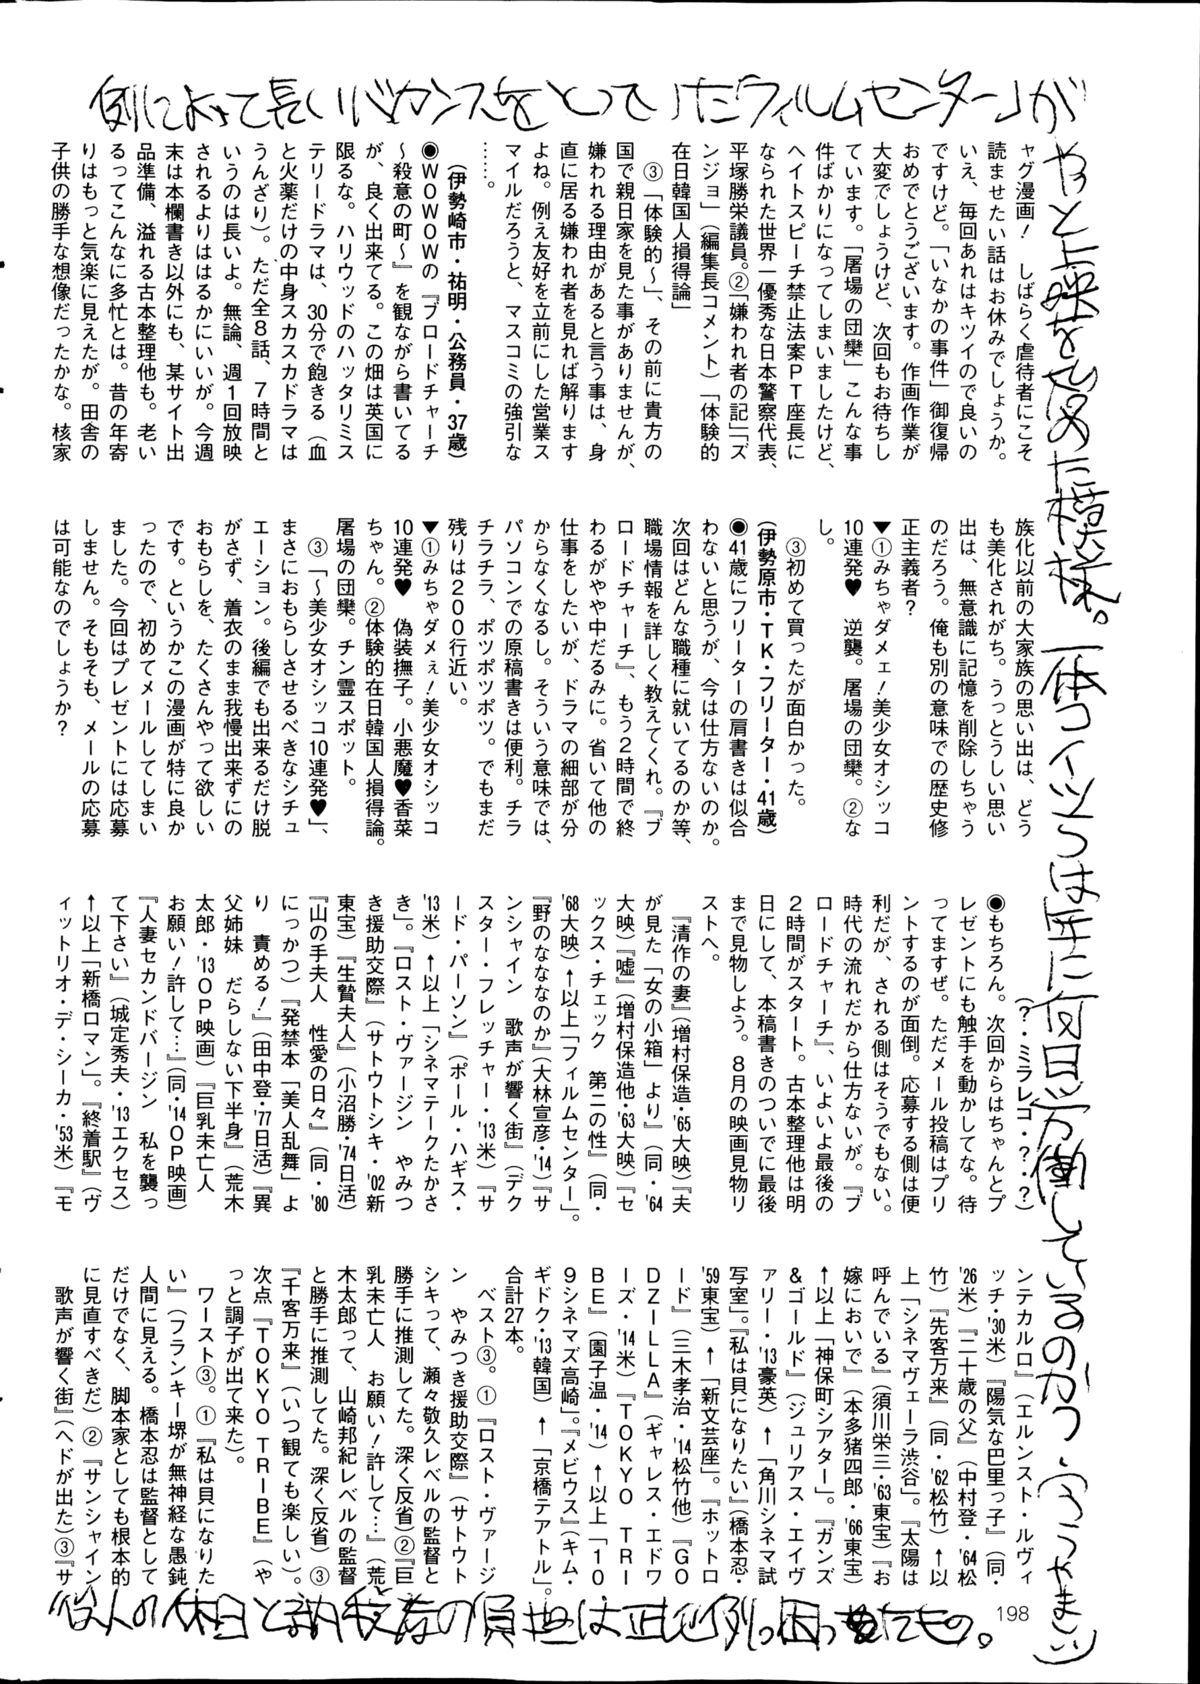 例によって長いバカンスをとっていた「フィルムセンター」が
やっと上映を始めた模様。一体コイツらは年に何日労働しているのか？（うらやましい）
ャグ漫画！　しばらく虐待者にこそ
読ませたい話はお休みでしょうか。
いえ、毎回あれはキツイので良いの
ですけど。「いなかの事件」御復帰
おめでとうございます。作画作業が
大変でしょうけど、次回もお待ちし
ています。「屠場の団欒」こんな事
件ばかりになってしまいましたけど、
ヘイトスピーチ禁止法案PT座長に
なられた世界一優秀な日本警察代表、
平塚勝栄議員。②「嫌われ者の記」「ズ
ンジョ」（編集長コメント）「体験的
在日韓国人損得論」
③「体験的～」、その前に貴方の
国で親日家を見た事がありませんが、
嫌われる理由があると言う事は、身
直に居る嫌われ者を見れば解ります
よね。例え友好を立前にした営業ス
マイルだろうと、マスコミの強引な
……。
（伊勢崎市・祐明・公務員・37歳）
◉WOWOWの『ブロードチャーチ
～殺意の町～』を観ながら書いてる
が、良く出来てる。この畑は英国に
限るな。ハリウッドのハッタリミス
テリードラマは、30分で飽きる（血
と火薬だけの中身スカスカドラマは
うんざり）。ただ全8話、7時間と
いうのは長いよ。無論、週1回放映
されるよりははるかにいいが。今週
末は本欄書き以外にも、某サイト出
品準備、溢れる古本整理他も。老い
るってこんなに多忙とは。昔の年寄
りはもっと気楽に見えたが。田舎の
子供の勝手な想像だったかな。核家
族化以前の大家族の思い出は、どう
も美化されがち。うっとうしい思い
出は、無意識に記憶を削除しちゃう
のだろう。俺も別の意味での歴史修
正主義者？
▼①みちゃダメェ！美少女オシッコ
10連発♥　逆襲。屠場の団欒。②な
し。
③初めて買ったが面白かった。
（伊勢原市・TK・フリーター・41歳）
◉41歳にフリーターの肩書きは似合
わないと思うが、今は仕方ないのか。
次回はどんな職種に就いてるのか等、
職場情報を詳しく教えてくれ。『ブ
ロードチャーチ』、もう2時間で終
わるがやや中だるみに。省いて他の
仕事をしたいが、ドラマの細部が分
からなくなるし。そういう意味では、
パソコンでの原稿書きは便利。チラ
チラチラ、ポツポツポツ。でもまだ
残りは200行近い。
▼①みちゃダメぇ！美少女オシッコ
10連発♥　偽装撫子。小悪魔♥香菜
ちゃん。②体験的在日韓国人損得論。
屠場の団欒。チン霊スポット。
③「～美少女オシッコ10連発♥」、
まさにおもらしさせるべきなシチュ
エーション。後編でも出来るだけ脱
がさず、着衣のまま我慢出来ずにの
おもらしを、たくさんやって欲しい
です。というかこの漫画が特に良か
ったので、初めてメールしてしまい
ました。今回はプレゼントには応募
しません。そもそも、メールの応募
は可能なのでしょうか？
（？・ミラレコ・？・？）
◉もちろん。次回からはちゃんとプ
レゼントにも触手を動かしてな。待
ってますぜ。ただメール投稿はプリ
ントするのが面倒。応募する側は便
利だが、される側はそうでもない。
時代の流れだから仕方ないが。『ブ
ロードチャーチ』、いよいよ最後の
2時間がスタート。古本整理他は明
日にして、本稿書きのついでに最後
まで見物しよう。8月の映画見物リ
ストへ。
『清作の妻』（増村保造・'65大映）『夫
が見た「女の小箱」より』（同・'64
大映）『嘘』（増村保造他・'63大映）『セ
ックス・チェック　第二の性』（同・
'68大映）↑以上「フィルムセンター」。
『野のなななのか』（大林宣彦・'14）『サ
ンシャイン　歌声が響く街』（デク
スター・フレッチャー・'13米）『サ
ード・パーソン』（ポール・ハギス・
'13米）↑以上「シネマテークたかさ
き」。『ロスト・ヴァージン　やみつ
き援助交際』（サトウトシキ・'02新
東宝）『生贄夫人』（小沼勝・'74日活）
『山の手夫人　性愛の日々』（同・'80
にっかつ）『発禁本「美人乱舞」よ
り　責める！』（田中登・'77日活）『異
父姉妹　だらしない下半身』（荒木
太郎・'13OP映画）『巨乳未亡人
お願い！許して…』（同・'14OP映画）
『人妻セカンドバージン　私を襲っ
て下さい』（城定秀夫・'13エクセス）
↑以上「新橋ロマン」。『終着駅』（ヴ
ィットリオ・デ・シーカ・'53米）『モ
ンテカルロ』（エルンスト・ルヴィ
ッチ・'30米）『陽気な巴里っ子』（同・
'26米）『二十歳の父』（中村登・'64松
竹）『先客万来』（同・'62松竹）↑以
上「シネマヴェーラ渋谷」。『太陽は
呼んでいる』（須川栄三・'63東宝）『お
嫁においで』（本多猪四郎・'66東宝）
↑以上「神保町シアター」。『ガンズ
＆ゴールド』（ジュリアス・エイヴ
ァリー・'13豪英）↑「角川シネマ試
写室」。『私は貝になりたい』（橋本忍・
'59東宝）↑「新文芸座」。『ホットロ
ード』（三木孝治・'14松竹他）『GO
DZILLA』（ギャレス・エドワ
ーズ・'14米）『TOKYO　TRI
BE』（園子温・'14）↑以上「10
9シネマズ高崎」。『メビウス』（キム・
ギドク・'13韓国）↑「京橋テアトル」。
合計27本。
ベスト③。①『ロスト・ヴァージ
ン　やみつき援助交際』（サトウト
シキって、瀬々敬久レベルの監督と
勝手に推測してた。深く反省）②『巨
乳未亡人　お願い！許して…』（荒
木太郎って、山崎邦紀レベルの監督
と勝手に推測してた。深く反省）③
『千客万来』（いつ観ても楽しい）。
次点『TOKYO TRIBE』（や
っと調子が出て来た）。
ワースト③。①『私は貝になりた
い』（フランキー堺が無神経な愚鈍
人間に見える。橋本忍は監督として
だけでなく、脚本家としても根本的
に見直すべきだ）②『サンシャイン
歌声が響く街』（ヘドが出た）③『サ
198
役人の休日と納税者の負担は正比例。困ったもの。